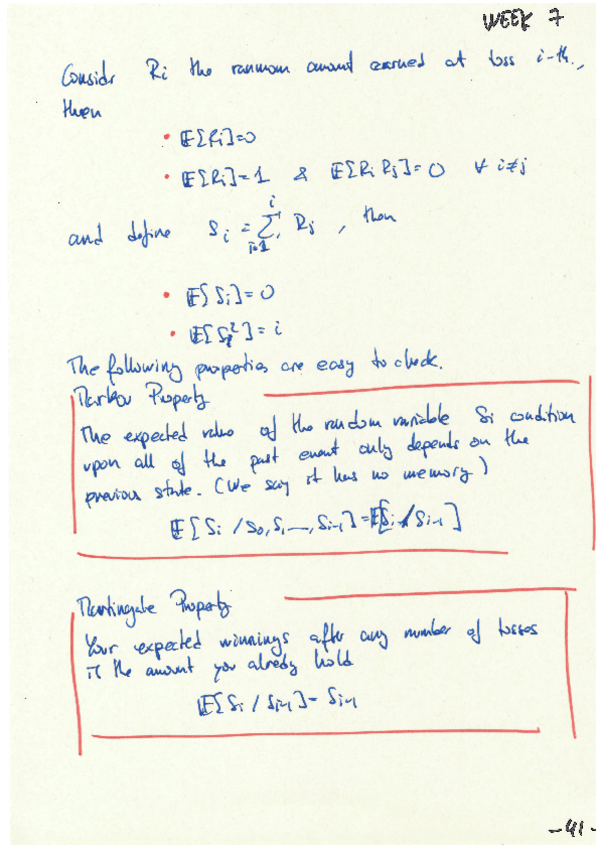 WEEK 7
Consider Ri the random amount earned at toss i-th.,
then
• E[Ri]=0
• E[Ri]=1 & E[Ri Rj]=0 ∀ i≠j
and define Si = ∑_{i=1}^{i} Rj , then
• E[Si]=0
• E[Si²]=i
The following properties are easy to check.
Markov Property
The expected value of the random variable Si condition
upon all of the past event only depends on the
previous state. (We say it has no memory)
E[Si / S0, S1, —, Si-1] = E[Si / Si-1]
Martingale Property
Your expected winnings after any number of tosses
is the amount you already hold
E[Si / Si-1] = Si-1
- 41 -